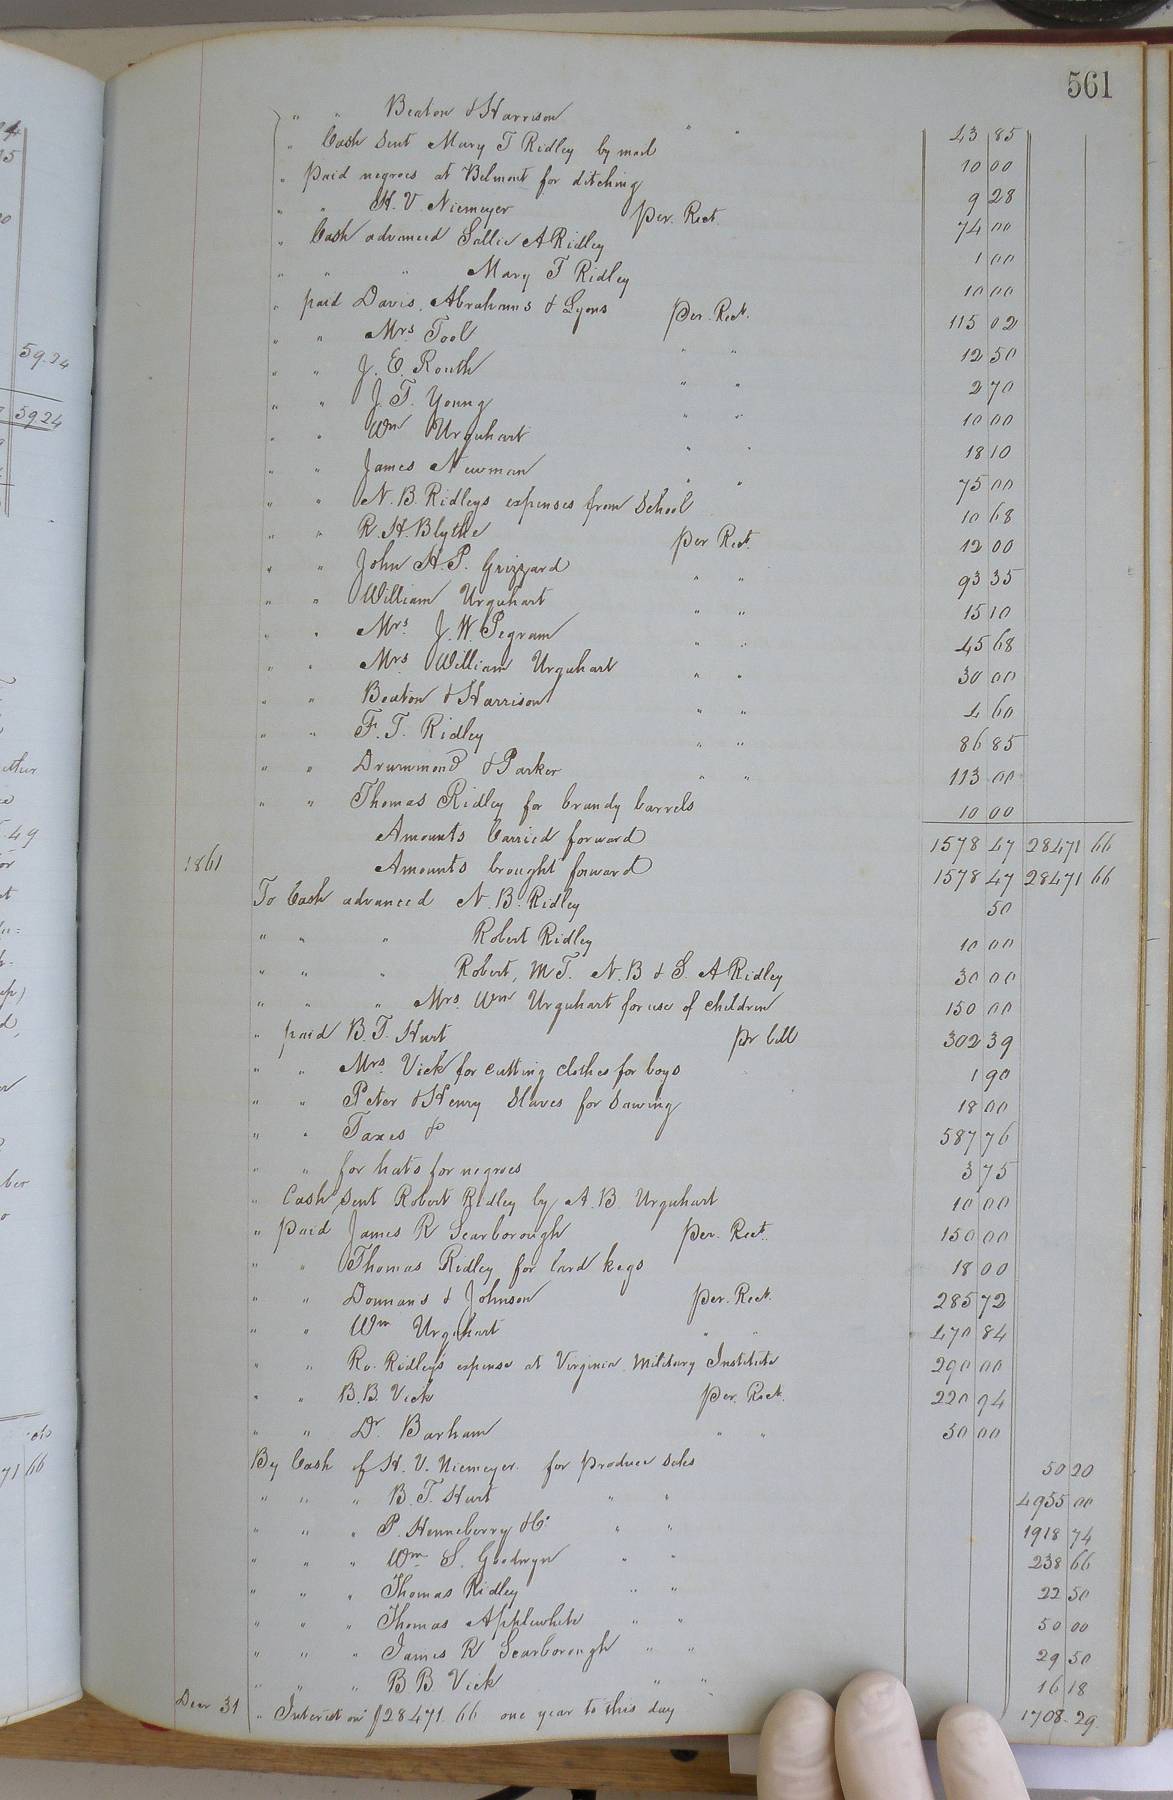 561
" " Beaton & Harrison " " 43 85
" Cash Sent Mary T Ridley by mail 10 00
" paid negroes at Belmont for ditching 9 28
" " H. V. Niemeyer per. Rect. 74 00
" Cash advanced Sallie A Ridley 1 00
" " " Mary T Ridley 10 00
" paid Davis, Abrahams & Lyons per. Rect. 115 02
" " Mrs Tool " " 12 50
" " J. E. Routh " " 2 70
" " J. T. Young " " 10 00
" " Wm Urquhart " " 18 10
" " James Newman " " 75 00
" " N. B. Ridleys expenses from School 10 68
" " R. H. Blythe per Rect. 12 00
" " John H. P. Grizzard " " 93 35
" " William Urquhart " " 15 10
" " Mrs. J. W. Pegram " " 45 68
" " Mrs William Urquhart " " 30 00
" " Beaton & Harrison " " 4 60
" " F. T. Ridley " " 86 85
" " Drummond & Parker " " 113 00
" " Thomas Ridley for brandy barrels 10 00
Amounts Carried forward 1578 47 28471 66
1861 Amounts brought forward 1578 47 28471 66
To Cash advanced N. B. Ridley 50
" " " Robert Ridley 10 00
" " " Robert, M T. N. B & S. A Ridley 30 00
" " " Mrs. Wm Urquhart for use of children 150 00
" paid B. T. Hurt pr bill 302 39
" " Mrs. Vick for cutting clothes for boys 1 90
" " Peter & Henry Slaves for Sawing 18 00
" " Taxes & 587 76
" " for hats for negroes 3 75
" Cash Sent Robert Ridley by A. B. Urquhart 10 00
" paid James R Scarborough per. Rect. 150 00
" " Thomas Ridley for lard kegs 18 00
" " Donnans & Johnson per. Rect. 285 72
" " Wm Urquhart " " 470 84
" " Ro. Ridley's expense at Virginia Military Institute 290 00
" " B. B. Vick per. Rect. 220 94
" " Dr Barham " " 50 00
By Cash of H. V. Niemeyer. for produce sales 50 20
" " " B. T. Hurt " " 4955 00
" " " P. Henneberry & Co " " 1918 74
" " " Wm S. Goodwyn " " 238 66
" " " Thomas Ridley " " 22 50
" " " Thomas Applewhite " " 50 00
" " " James R Scarborough " " 29 50
" " " B B Vick " " 16 18
Decr 31 " Interest on $28471.66 one year to this day 1708.29